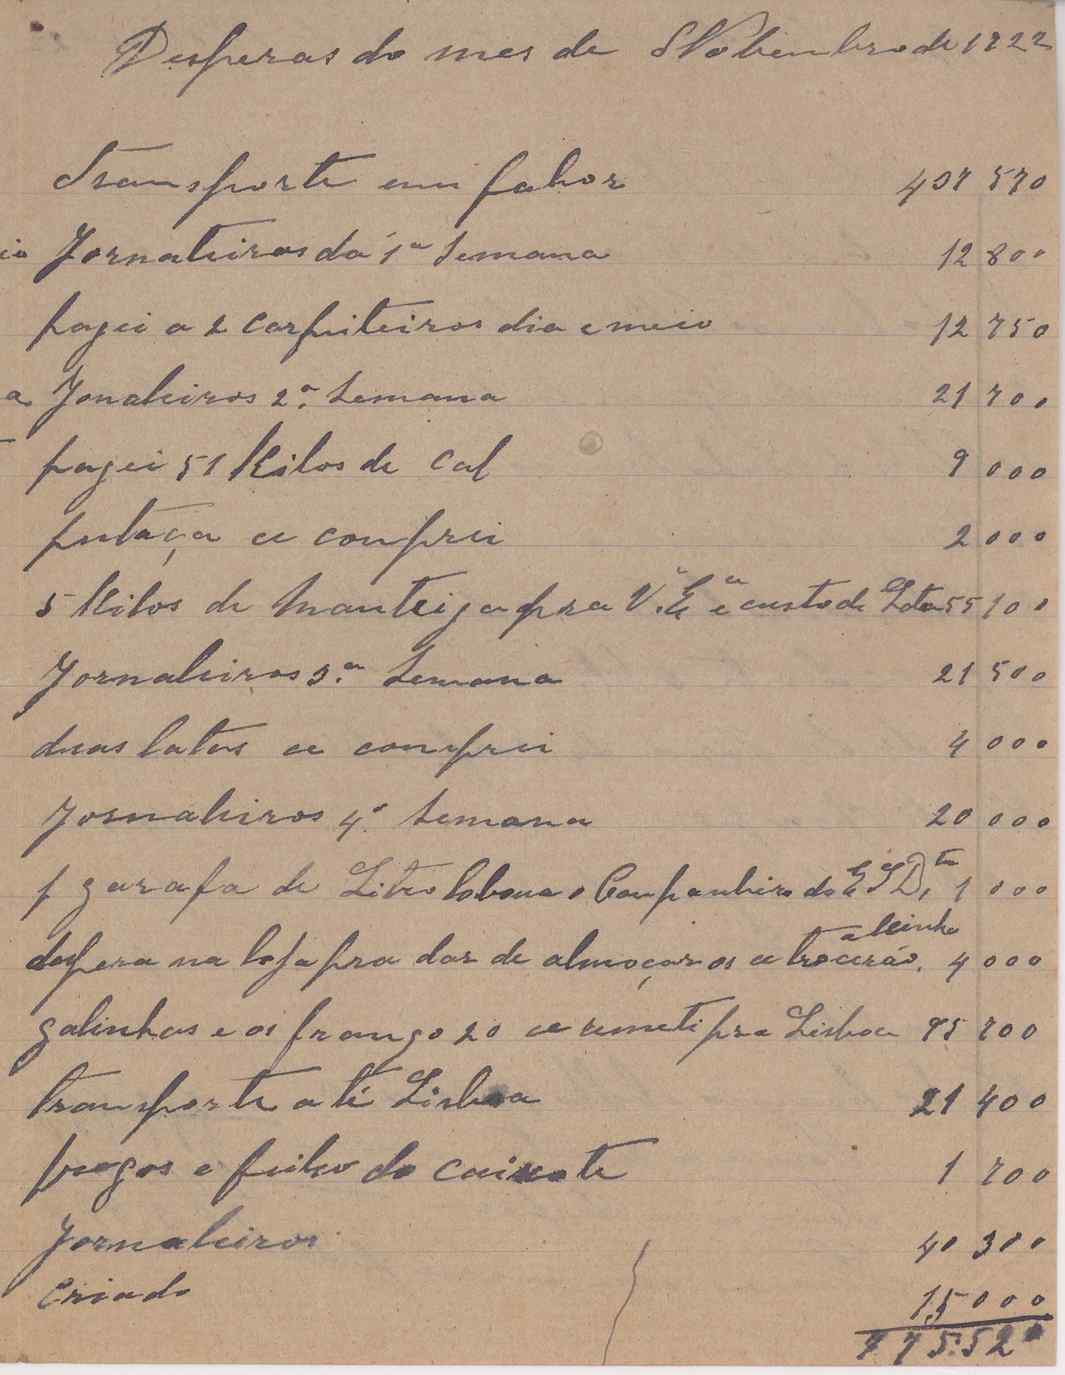 Despezas do mes de Nobembro de 1922
Transporte em fabor 437 570
Jornaleiros da 1ª Semana 12 800
pagei a 2 Carpiteiros dia e meio 12 750
a Jonaleiros 2ª Semana 21 700
pagei 51 Kilos de Cal 9 000
putaça ce comprei 2 000
5 Kilos de Manteiga pra V. Eª e custo de Lata 55 100
Jornaleiros 3ª Semana 21 500
duas latas ce comprei 4 000
Jornaleiros 4ª Semana 20 000
1 garafa de Litro labou o Companheiro do 1 000
despeza na loja pra dar de almoçar os ce trocerão a leinha 4 000
galinhas e os frango 20 ce remeti pra Lisboa 95 700
transporte até Lisboa 21 400
pregos e feitio do caixote 1 700
Jornaleiros 40 300
Criado 15 000
775:520